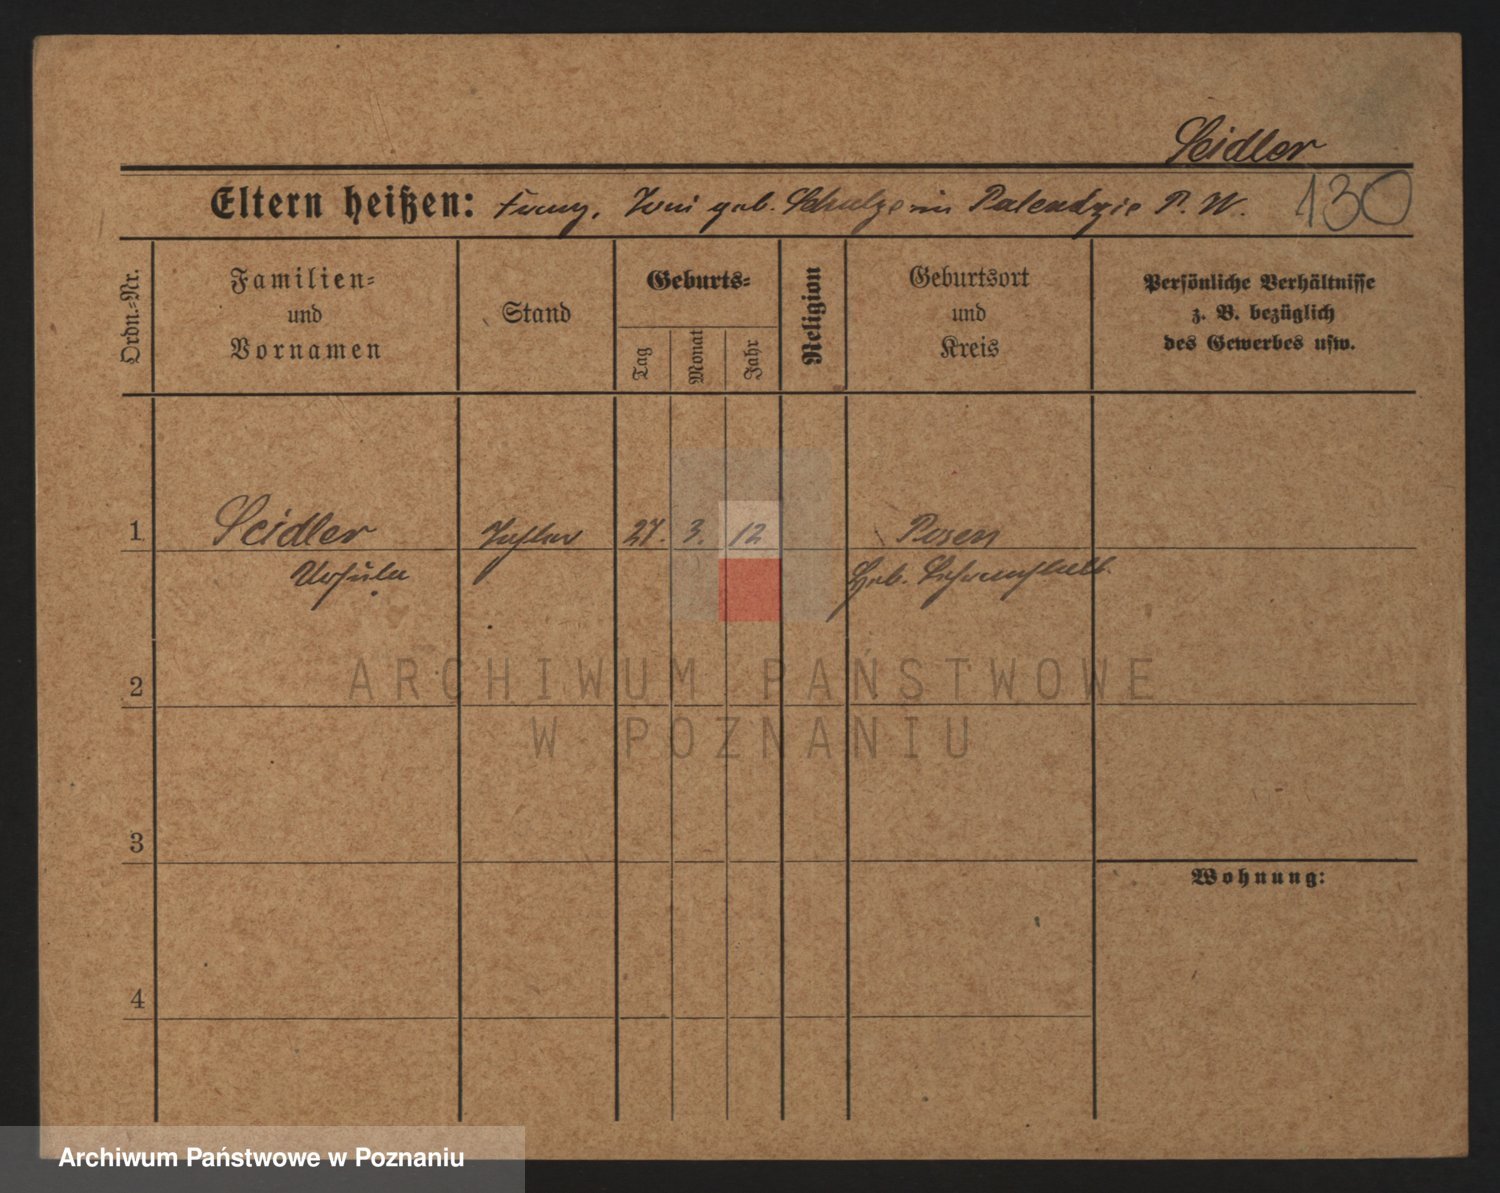 Seidler
Eltern heißen: Franz, Toni geb. Schulze in Palendzie P. W. 130
Ordn.-Nr.
Familien-
und
Vornamen
Stand
Geburts-
Tag
Monat
Jahr
Religion
Geburtsort
und
Kreis
Persönliche Verhältnisse
z. B. bezüglich
des Gewerbes usw.
1 Seidler Tochter 27. 3. 12 Posen
Ursula Geb.
2
3
Wohnung:
4
ARCHIWUM PAŃSTWOWE
W POZNANIU
Archiwum Państwowe w Poznaniu